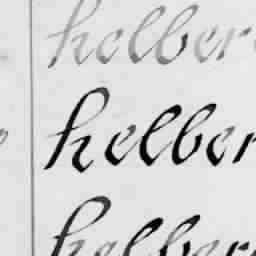 helber
helber
helber